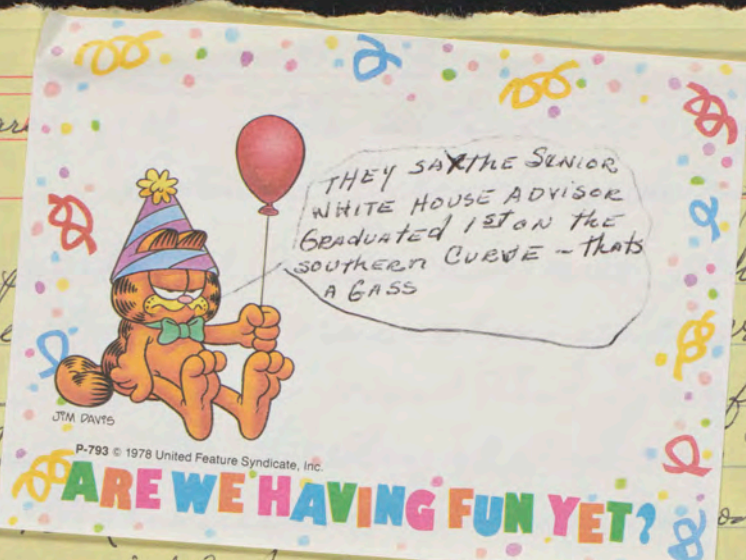 THEY SAY THE SENIOR
WHITE HOUSE ADVISOR
GRADUATED 1ST ON THE
SOUTHERN CURVE - THATS
A GASS
JIM DAVIS
P-793 © 1978 United Feature Syndicate, Inc.
ARE WE HAVING FUN YET?